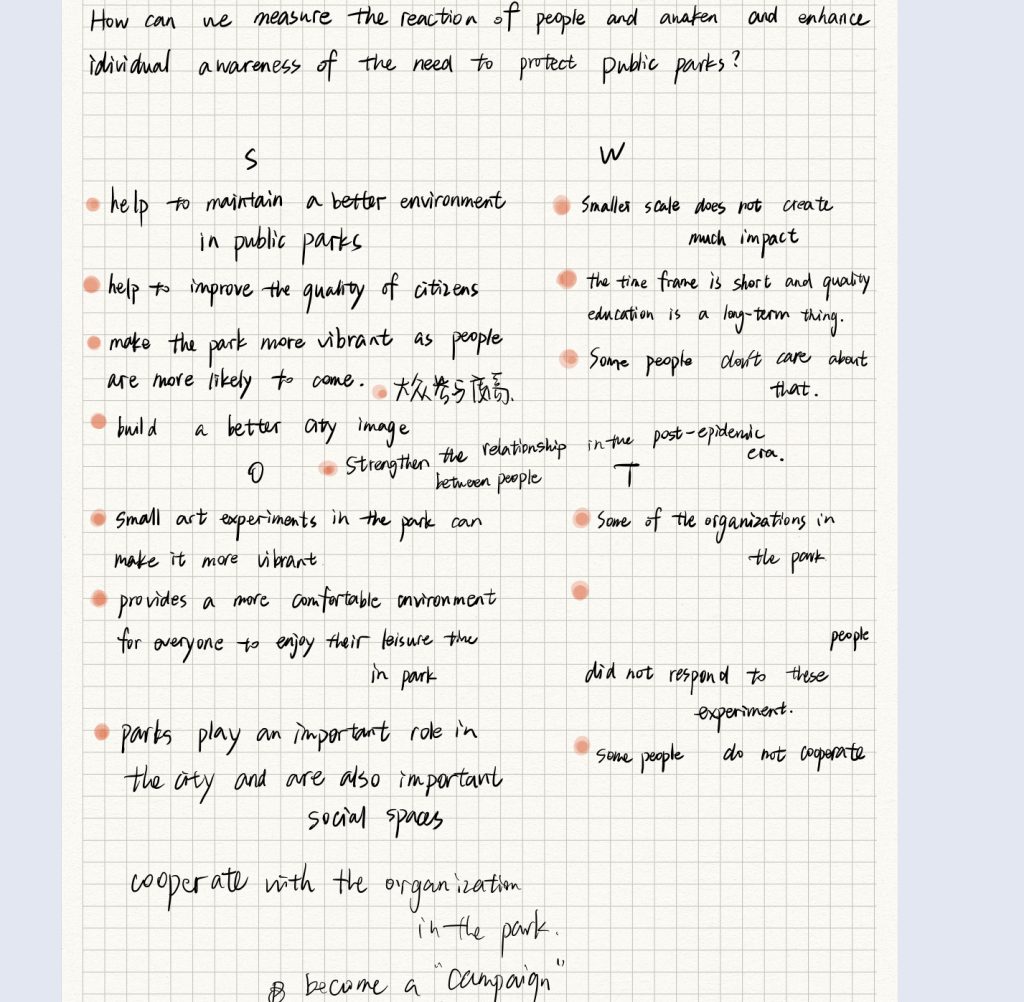 How can we measure the reaction of people and awaken and enhance
idividual awareness of the need to protect public parks?
S
help to maintain a better environment
in public parks
help to improve the quality of citizens
make the park more vibrant as people
are more likely to come.
大众参与度高.
build a better city image
Strengthen the relationship in the post-epidemic
between people era.
W
Smaller scale does not create
much impact
the time frame is short and quality
education is a long-term thing.
Some people don't care about
that.
O
Small art experiments in the park can
make it more vibrant
provides a more comfortable environment
for everyone to enjoy their leisure time
in park
parks play an important role in
the city and are also important
social spaces
T
Some of the organizations in
the park
people
did not respond to these
experiment.
Some people do not cooperate
cooperate with the organization
in the park.
become a "campaign"